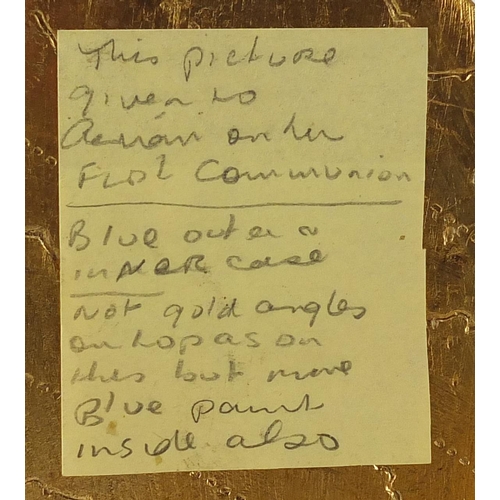 This picture
given to
on her
First Communion
Blue outer &
inNER case
Not gold angles
on top as on
this but more
Blue paint
inside also